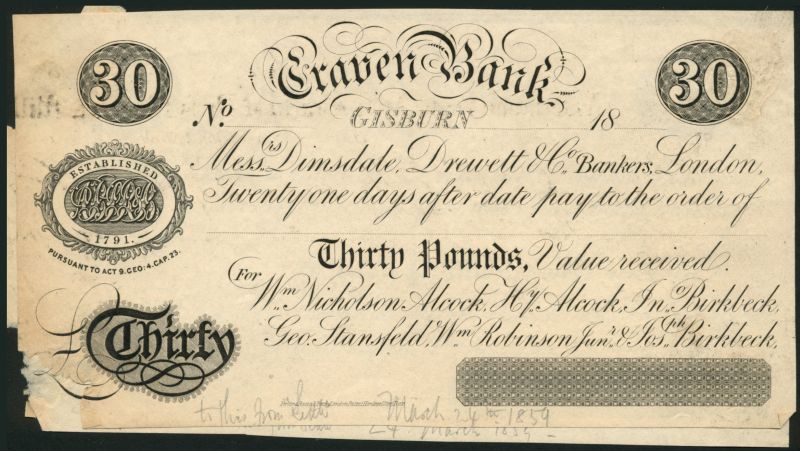 30 Craven Bank 30
No. GISBURN 18
Messrs. Dimsdale, Drewett & Co. Bankers, London,
Twenty one days after date pay to the order of
ESTABLISHED
1791.
PURSUANT TO ACT 9. GEO: 4. CAP. 23.
Thirty Pounds, Value received.
For
Wm. Nicholson Alcock, Hy. Alcock, Jno. Birkbeck,
Geo. Stansfeld, Wm. Robinson Junr. & Josph. Birkbeck,
£ Thirty
to this from March 24th 1859
24 March 1859